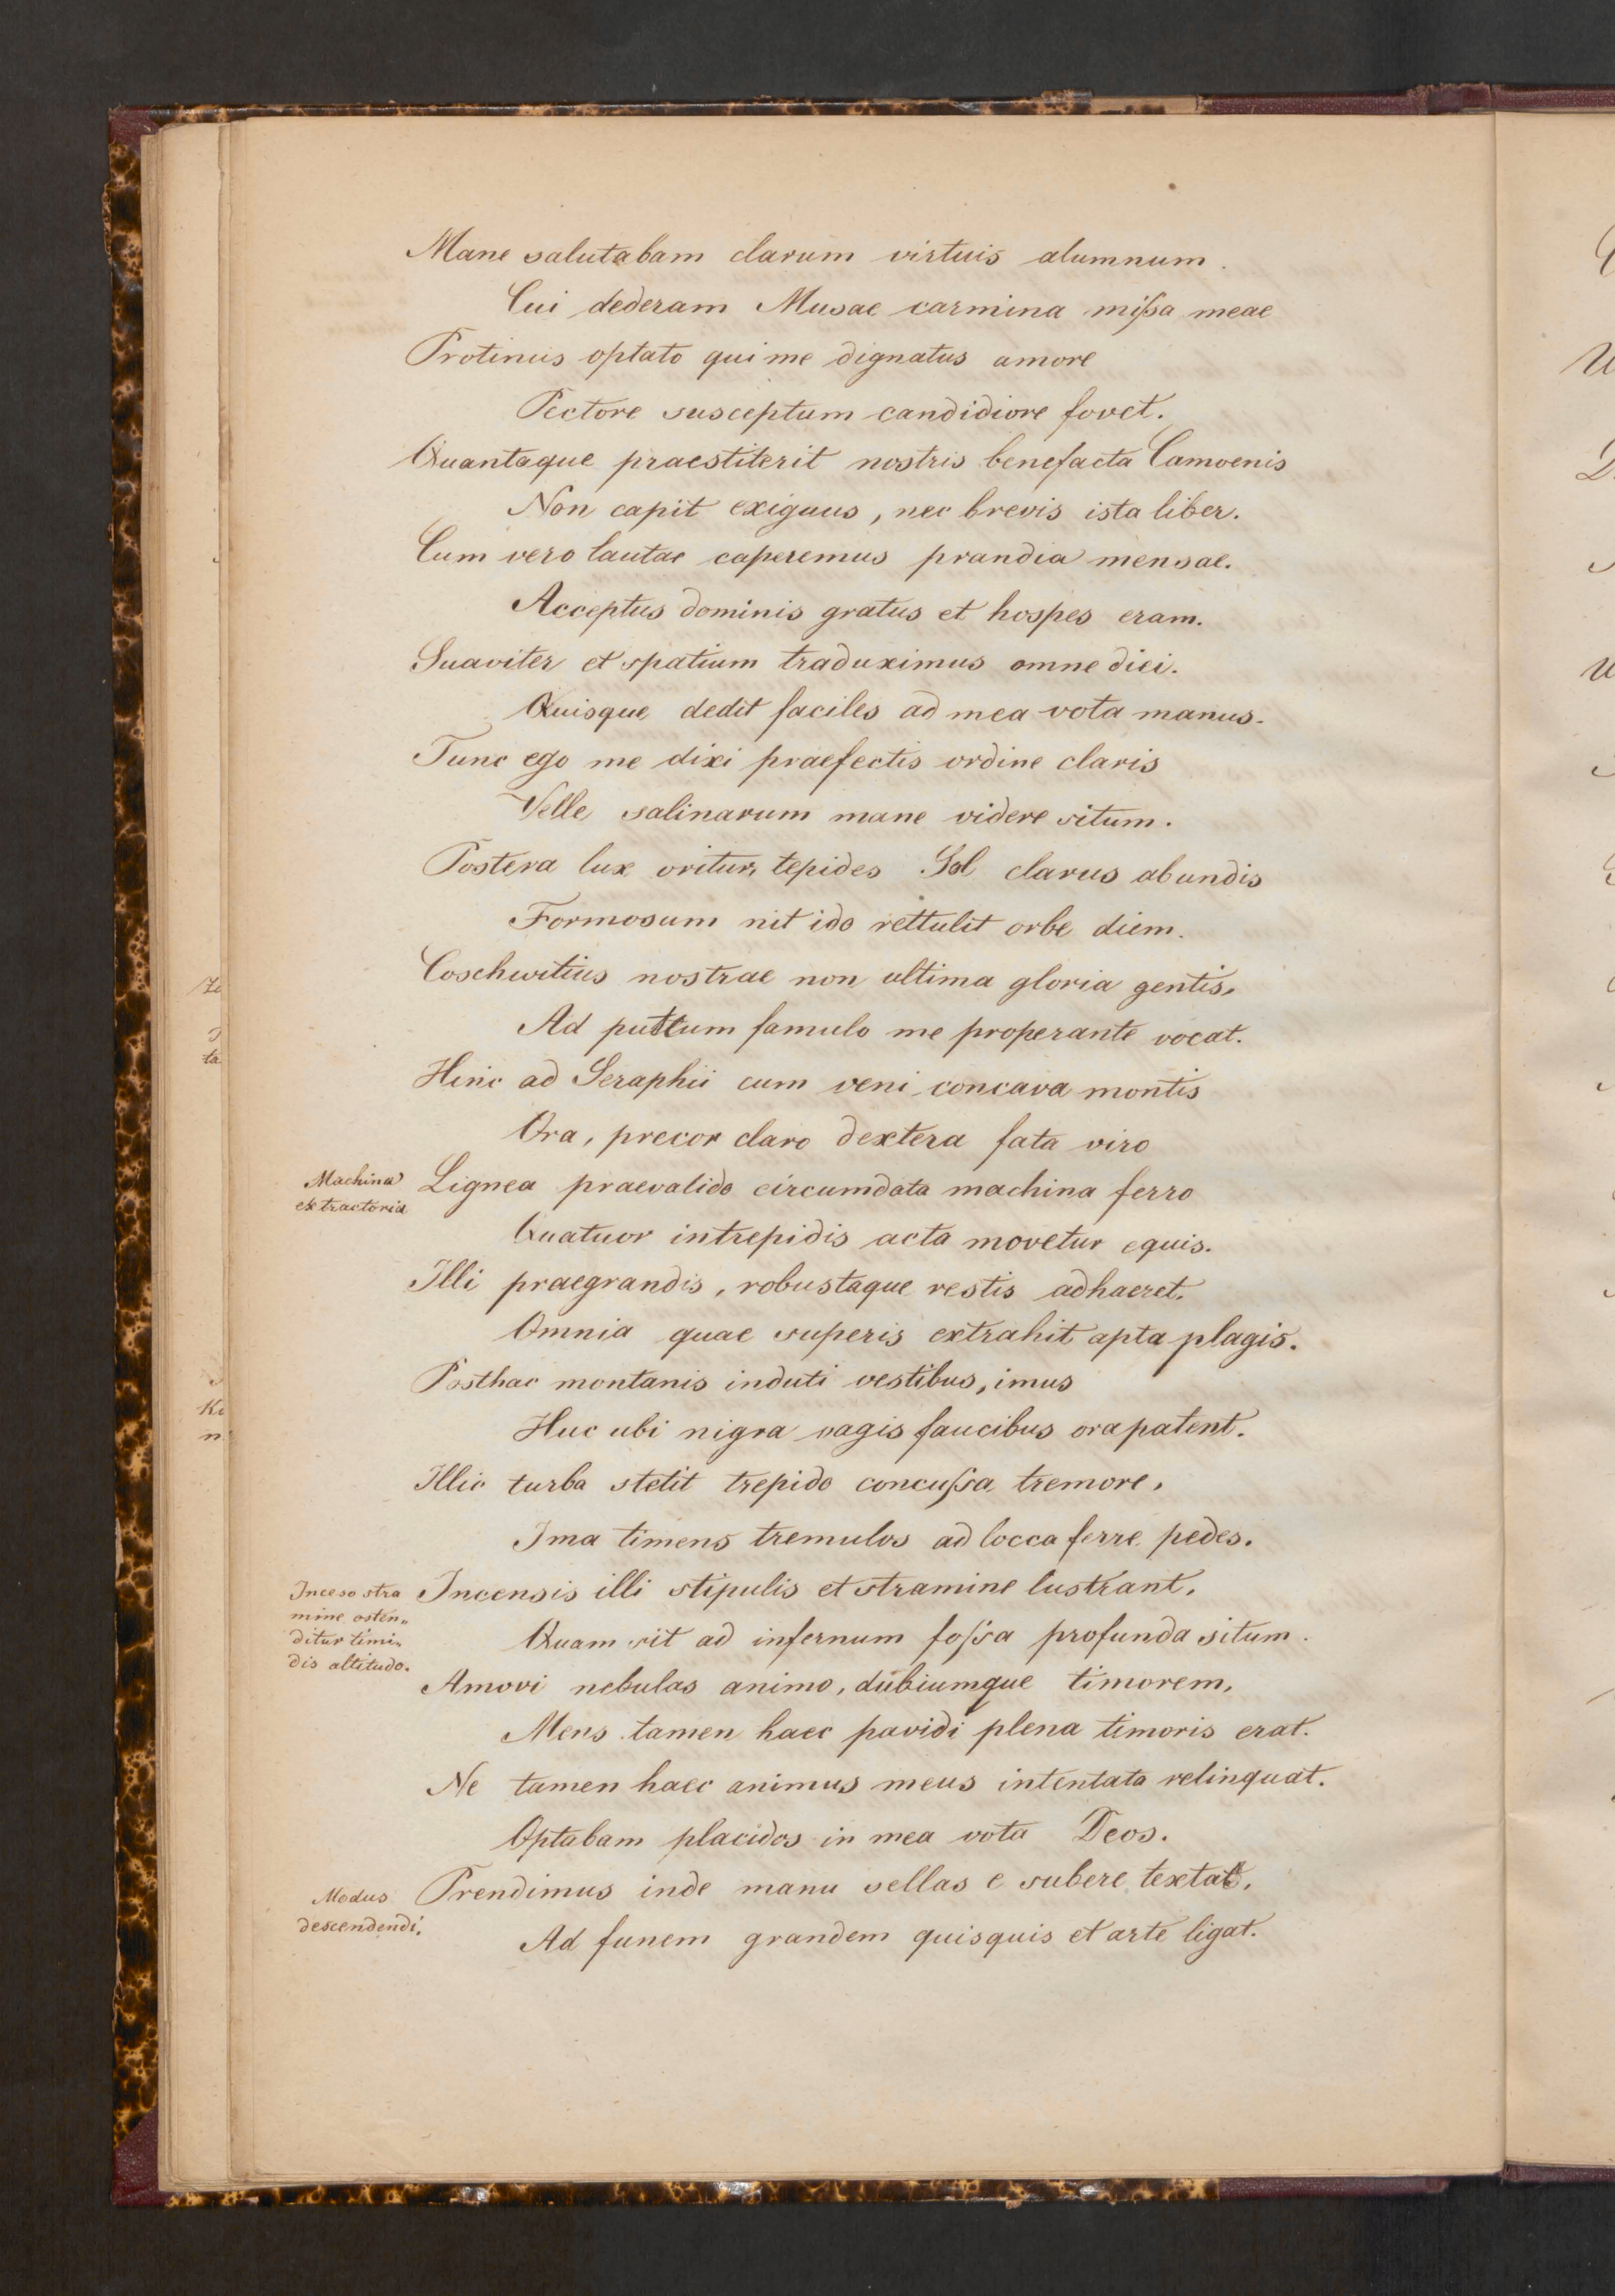 Mane salutabam clarum virtuis alumnum.
Cui dederam Musae carmina mißa meae
Protinus optato qui me dignatus amore
Pectore susceptum candidiore fovet.
Quantaque praestiterit nostris benefacta Camoenis
Non capit exiguus, nec brevis ista liber.
Cum vero lautae caperemus prandia mensae.
Acceptus dominis gratus et hospes eram.
Suaviter et spatium traduximus omne diei.
Quisque dedit faciles ad mea vota manus.
Tunc ego me dixi praefectis ordine claris
Velle salinarum mane videre situm.
Postera lux oritur, tepides Sol clarus ab undis
Formosum nit ido rettulit orbe diem.
Coschwitius nostrae non ultima gloria gentis,
Ad puttum famulo me properante vocat.
Hinc ad Seraphii cum veni concava montis
Ora, precor claro dextera fata viro
Machina
extractoria
Lignea praevalido circumdata machina ferro
Quatuor intrepidis acta movetur equis.
Illi praegrandis, robustaque restis adhaeret,
Omnia quae superis extrahit apta plagis.
Posthac montanis induti vestibus, imus
Huc ubi nigra vagis faucibus ora patent.
Illic turba stetit trepido concußa tremore,
Ima timens tremulos ad locca ferre pedes.
Inceso stra
mine osten„
ditur timi„
dis altitudo.
Incensis illi stipulis et stramine lustrant,
Quam sit ad infernum foßa profunda situm.
Amovi nebulas animo, dubiumque timorem,
Mens tamen haec pavidi plena timoris erat.
Ne tamen haec animus meus intentata relinquat.
Optabam placidos in mea vota Deos.
Modus
descendendi.
Prendimus inde manu sellas e subere textas,
Ad funem grandem quisquis et arte ligat.